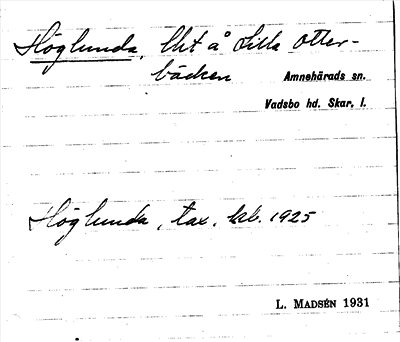 Höglunda, lht å Lilla Otter-
bäcken
Amnehärads sn.
Vadsbo hd. Skar. l.
Höglunda, tax. lkb. 1925
L. MADSÉN 1931